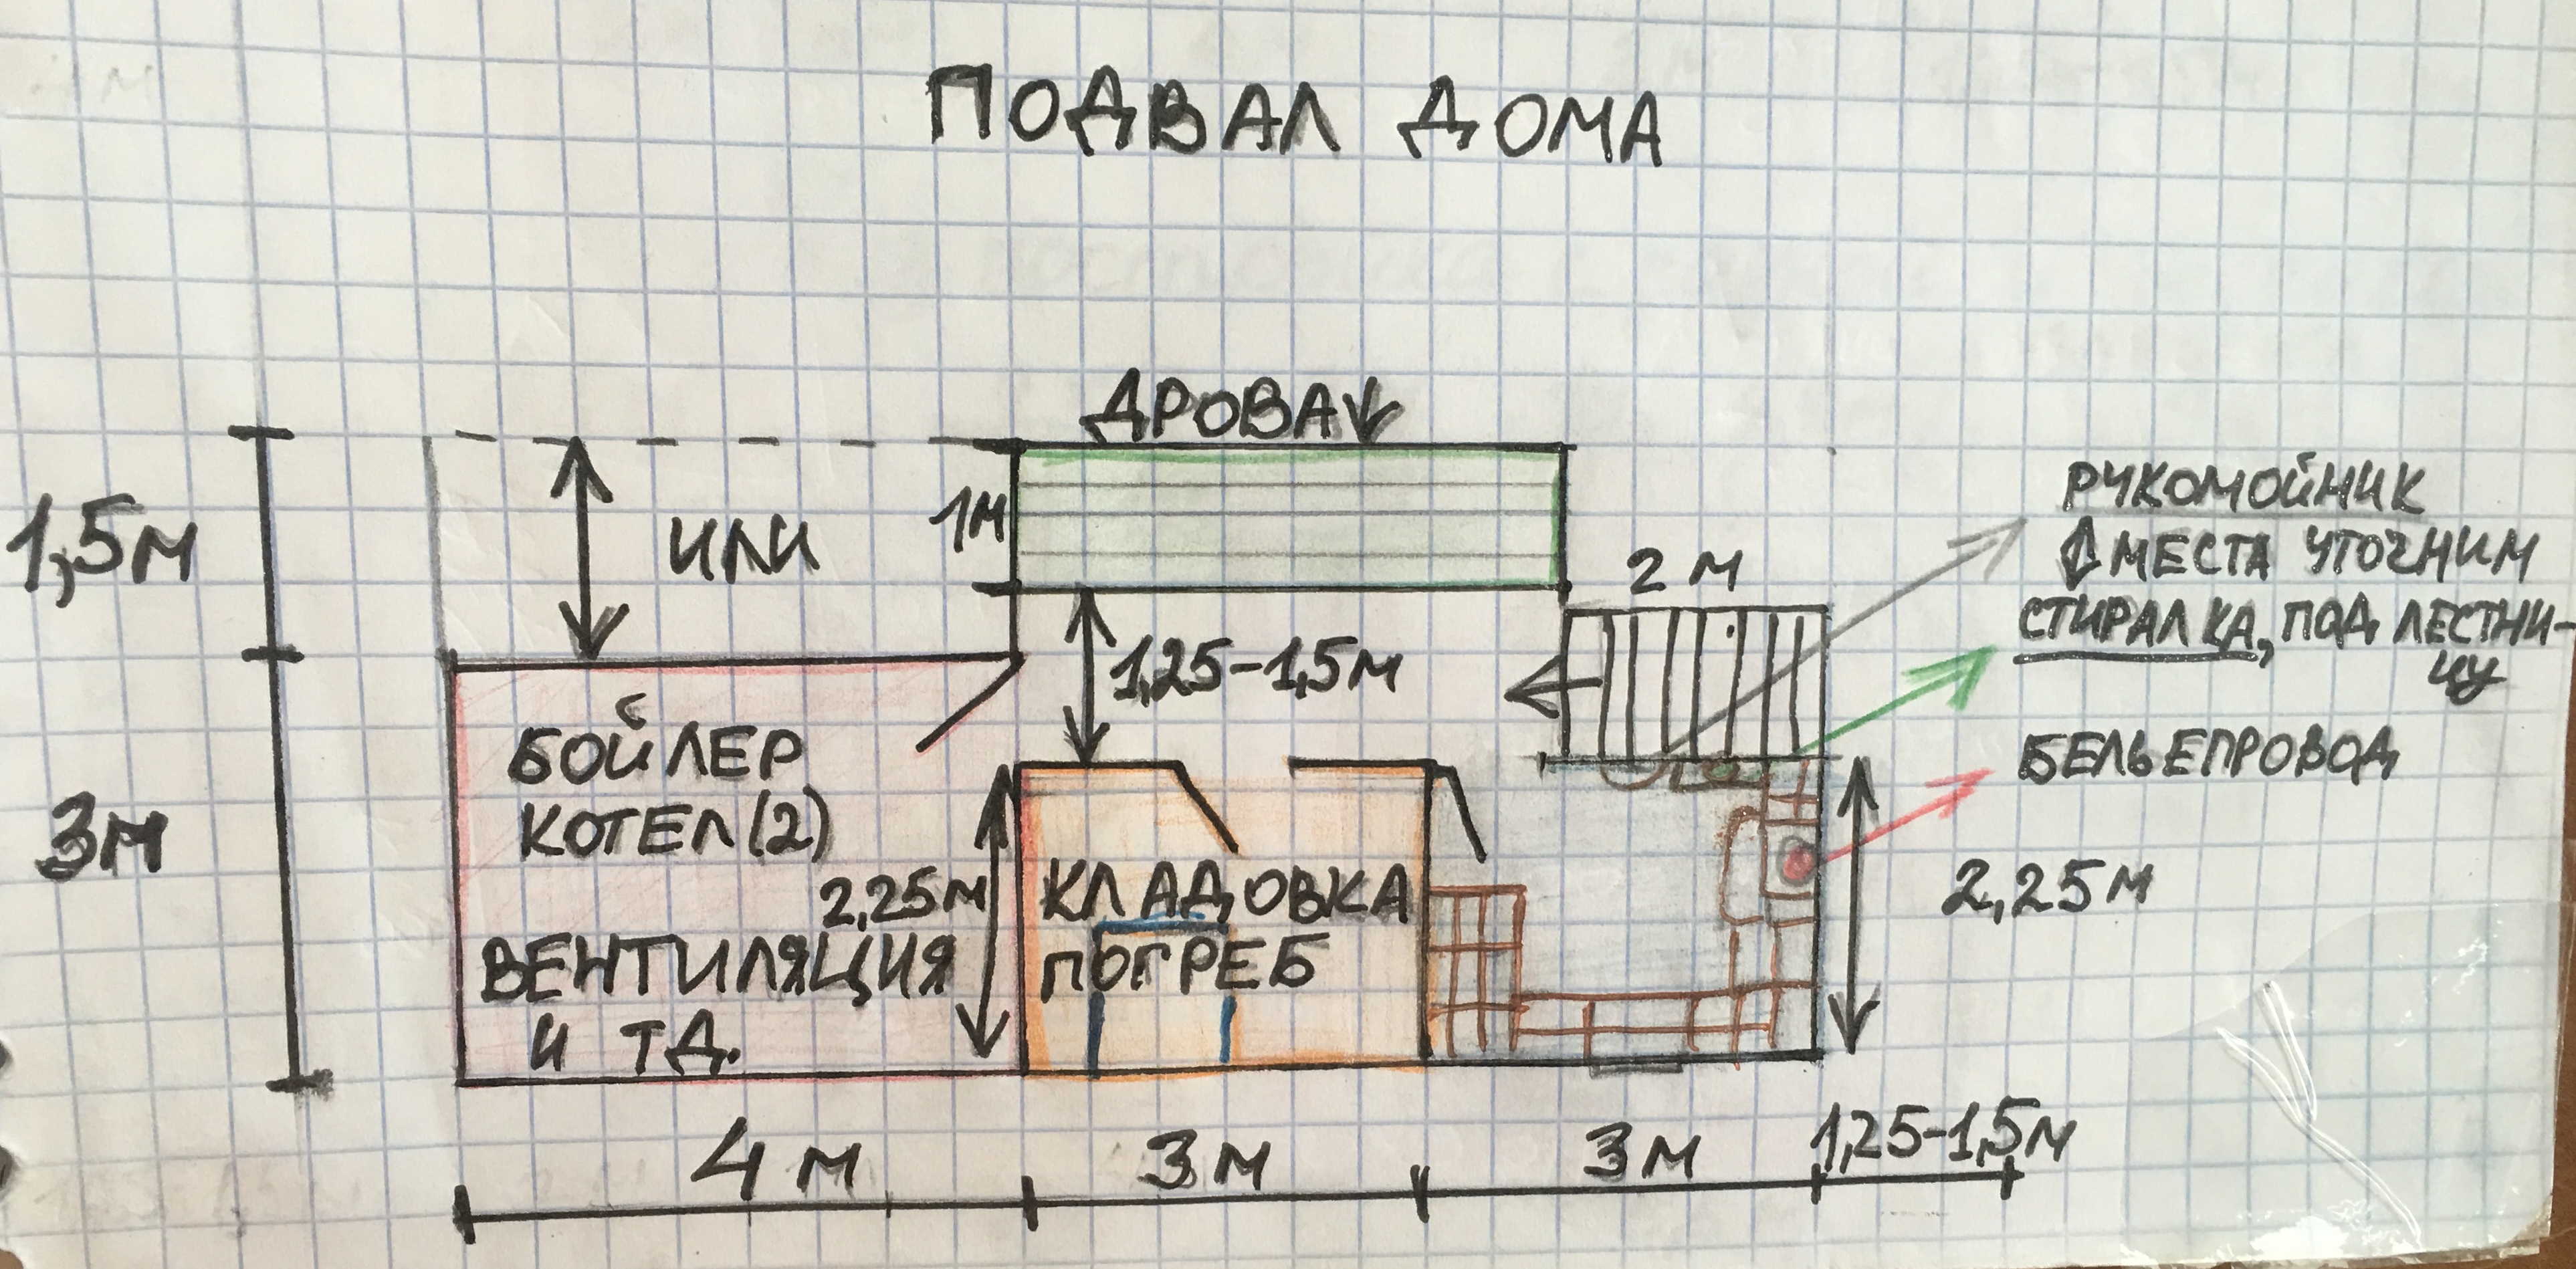 ПОДВАЛ ДОМА
ДРОВА
1,5м
ИЛИ
1м
2 м
РУКОМОЙНИК
МЕСТА УТОЧНИМ
СТИРАЛКА, ПОД ЛЕСТНИ-
ЦУ
1,25-1,5м
БОЙЛЕР
КОТЕЛ(2)
БЕЛЬЕПРОВОД
3м
2,25м
КЛАДОВКА
ПОГРЕБ
2,25м
ВЕНТИЛЯЦИЯ
И ТД.
4 м
3 м
3 м
1,25-1,5м